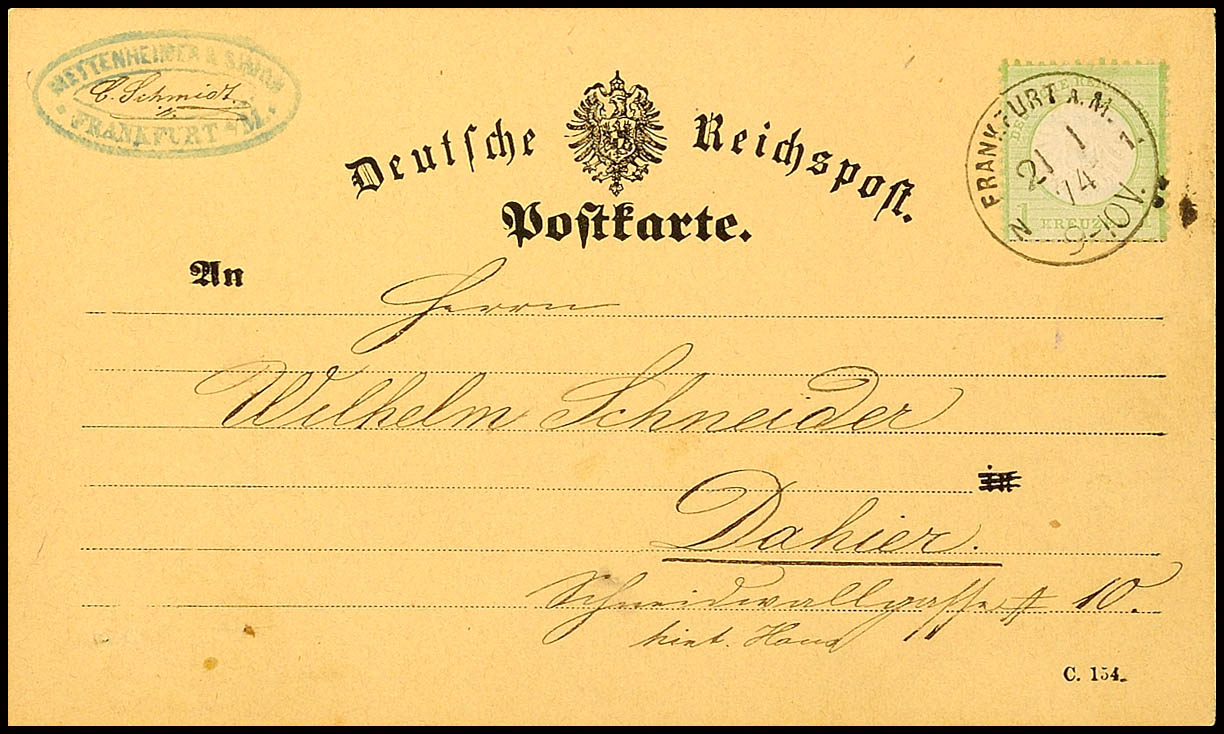 METTENHEIMER & SIMON
C. Schmidt.
FRANKFURT a/M.
Deutsche Reichspost.
Postkarte.
FRANKFURT A.M. 1
21 1
74
N 9-10V.
1 KREUZER
An
Herrn
Wilhelm Schneider
in
Dahier.
Schneidwallgasse # 10.
hint. Haus
C. 154.